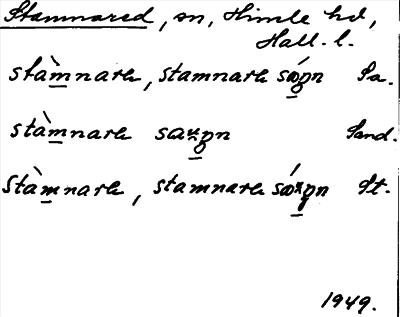 Stamnared, sn, Himle hd,
Hall. l.
stàmnarɛ, stamnarɛ sǿgn Sa.
stàmnarɛ Sand.
Stàmnarɛ, stamnarɛ St.
1949.